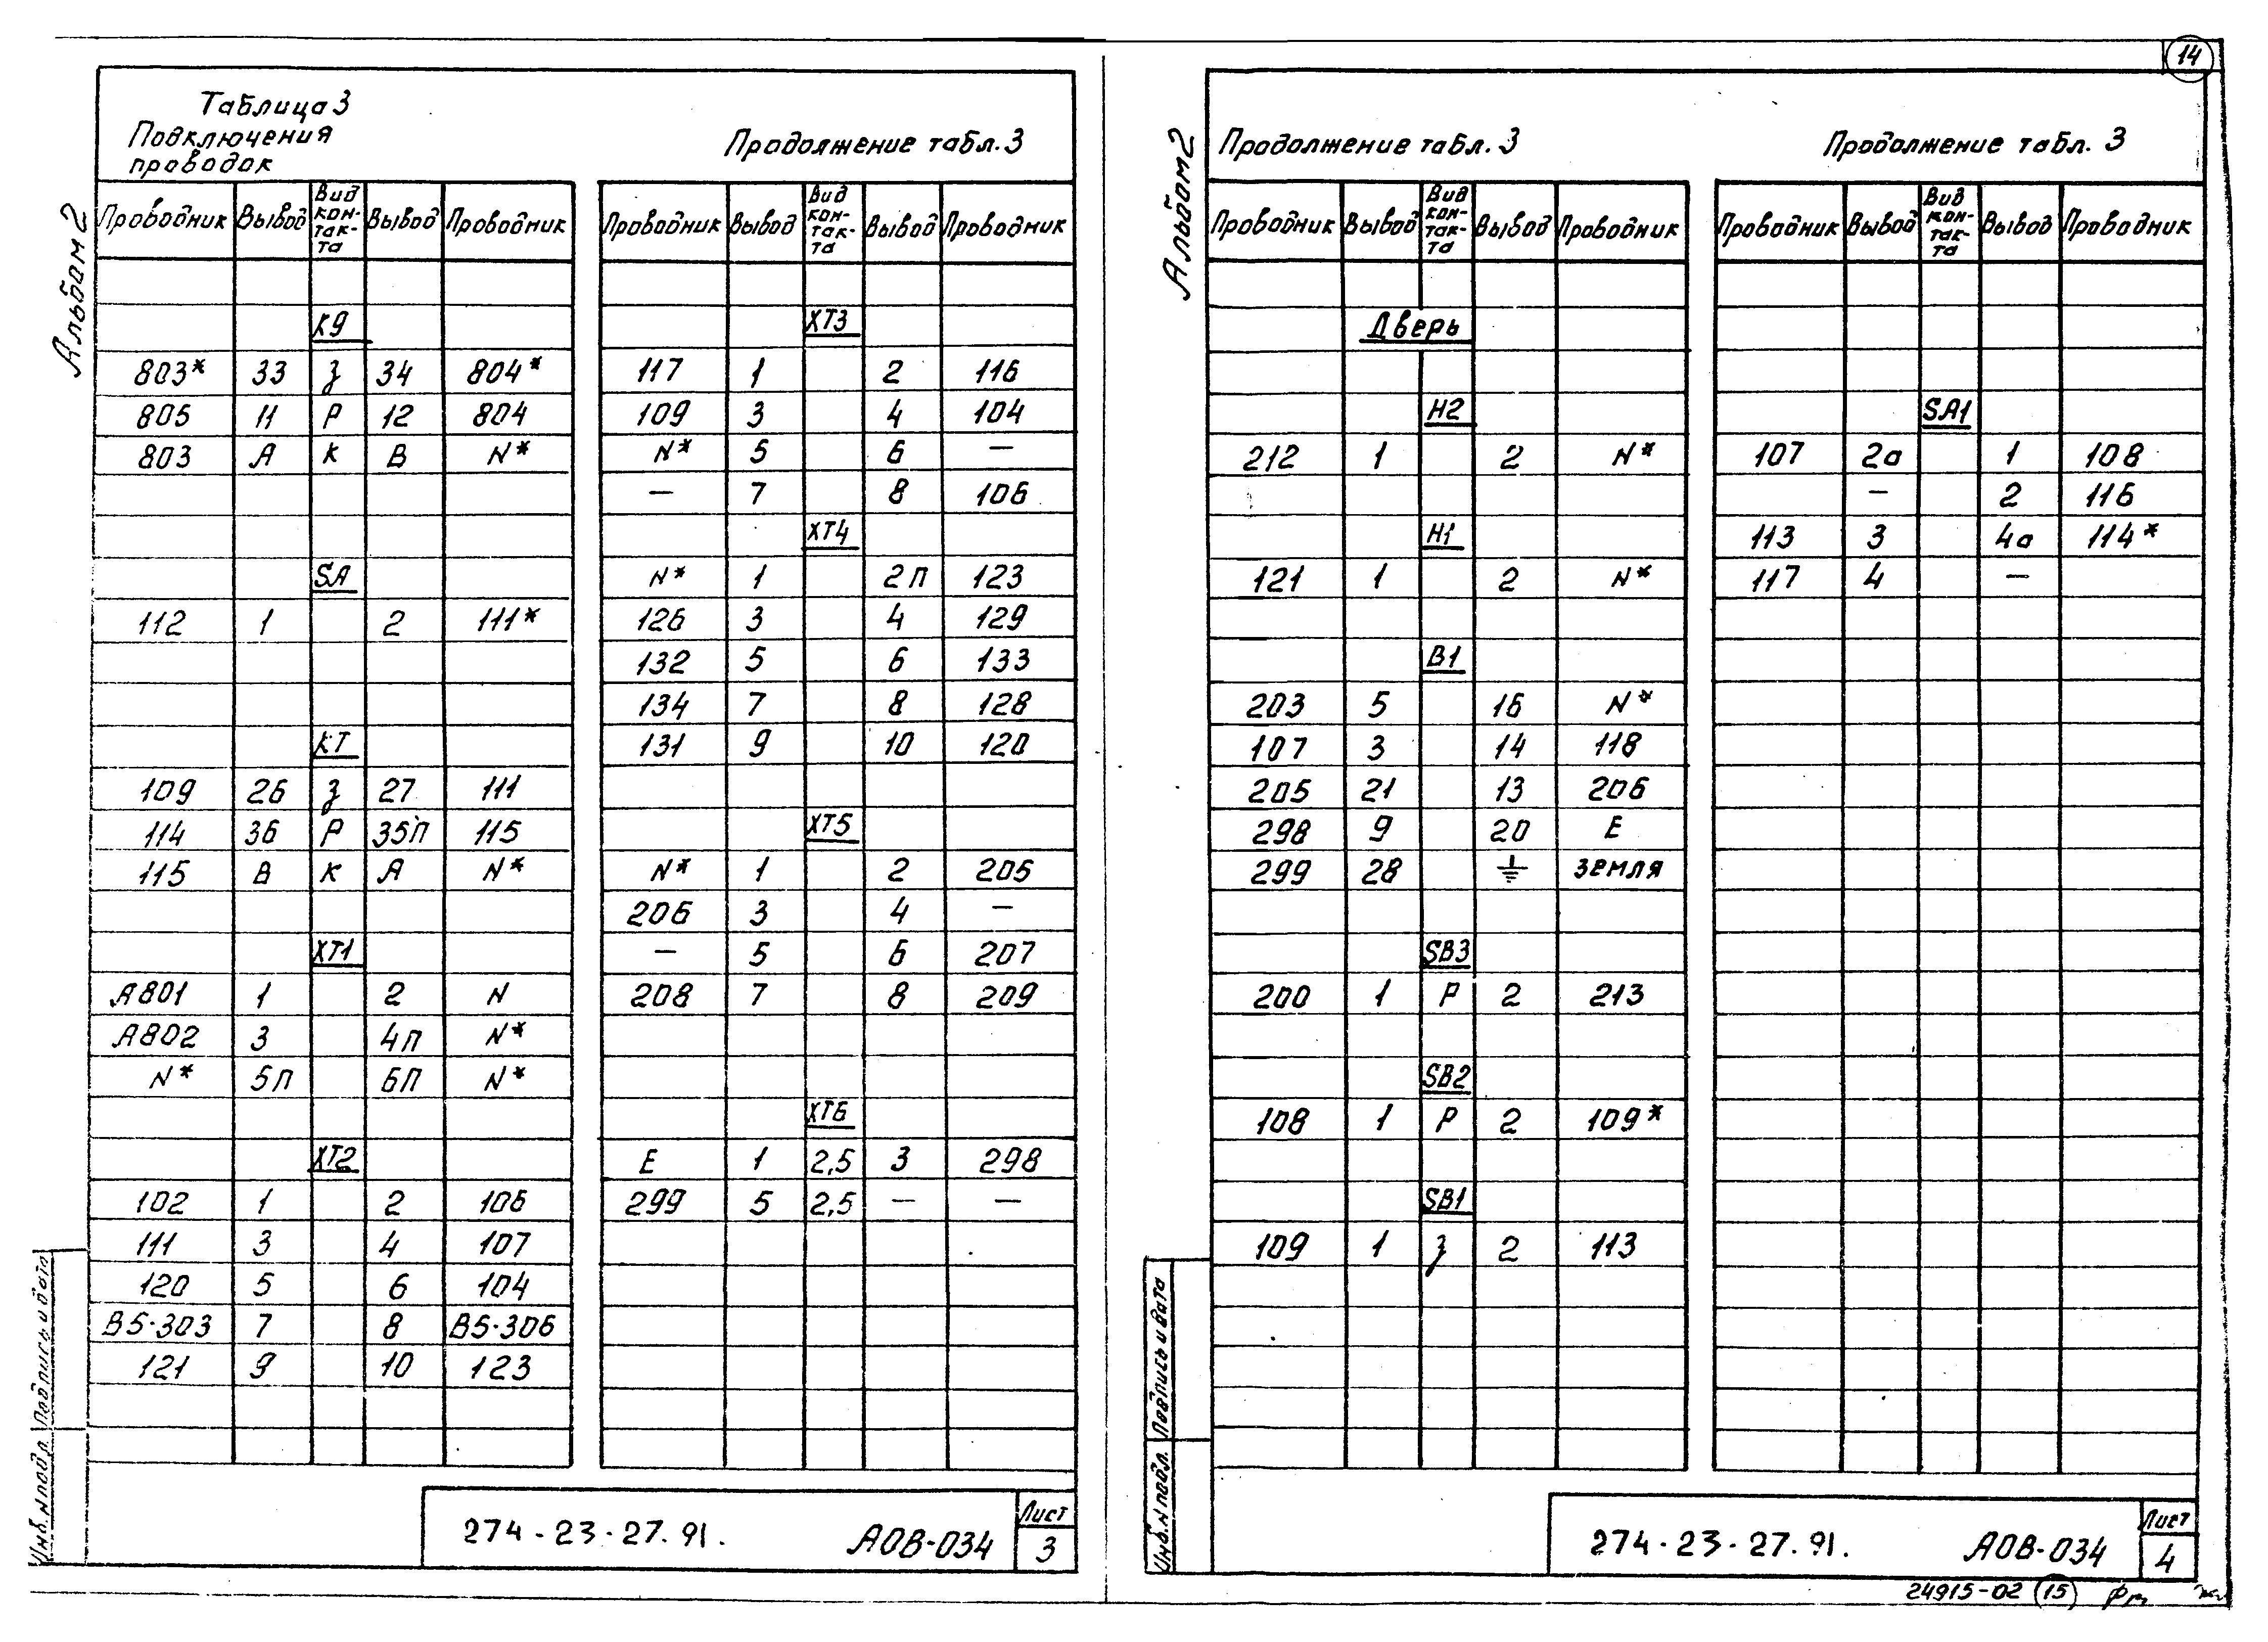 14
Альбом 2
Таблица 3
Подключения
проводок
Проводник Вывод Вид кон-так-та Вывод Проводник
К9
803* 33 З 34 804*
805 11 Р 12 804
803 А К В N*
SA
112 1 2 111*
КТ
109 26 З 27 111
114 36 Р 35П 115
115 В К А N*
ХТ1
А801 1 2 N
А802 3 4П N*
N* 5П 6П N*
ХТ2
102 1 2 106
111 3 4 107
120 5 6 104
В5·303 7 8 В5·306
121 9 10 123
Продолжение табл. 3
Проводник Вывод Вид кон-так-та Вывод Проводник
ХТ3
117 1 2 116
109 3 4 104
N* 5 6 —
— 7 8 106
ХТ4
N* 1 2П 123
126 3 4 129
132 5 6 133
134 7 8 128
131 9 10 120
ХТ5
N* 1 2 205
206 3 4 —
— 5 6 207
208 7 8 209
ХТ6
Е 1 2,5 3 298
299 5 2,5 — —
Инв.N подл. Подпись и дата
274-23-27.91. АОВ-034
Лист
3
Альбом 2
Продолжение табл. 3
Проводник Вывод Вид кон-так-та Вывод Проводник
Дверь
Н2
212 1 2 N*
Н1
121 1 2 N*
В1
203 5 16 N*
107 3 14 118
205 21 13 206
298 9 20 Е
299 28 ⏚ земля
SB3
200 1 Р 2 213
SB2
108 1 Р 2 109*
SB1
109 1 З 2 113
Продолжение табл. 3
Проводник Вывод Вид кон-так-та Вывод Проводник
SA1
107 2а 1 108
— 2 116
113 3 4а 114*
117 4 —
Инв.N подл. Подпись и дата
274-23-27.91. АОВ-034
Лист
4
24915-02 15